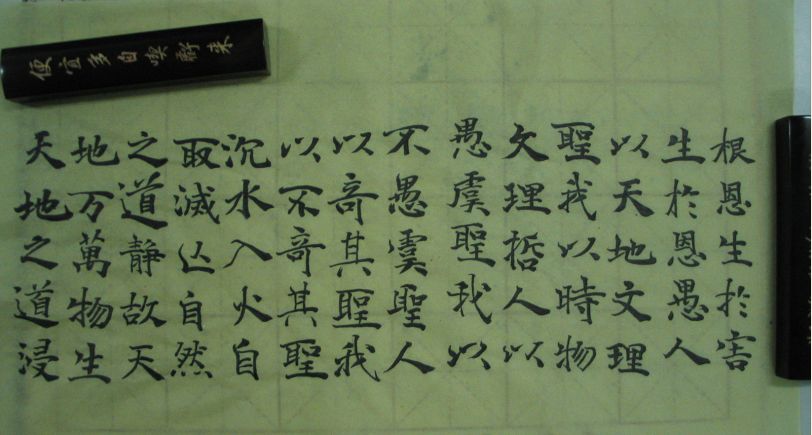 便宜多自喫虧来
根恩生於害
生於恩愚人
以天地文理
聖我以時物
文理哲人以
愚虞聖我以
不愚虞聖人
以奇其聖我
以不奇其聖
沉水入火自
取滅亡自然
之道靜故天
地万萬物生
天地之道浸